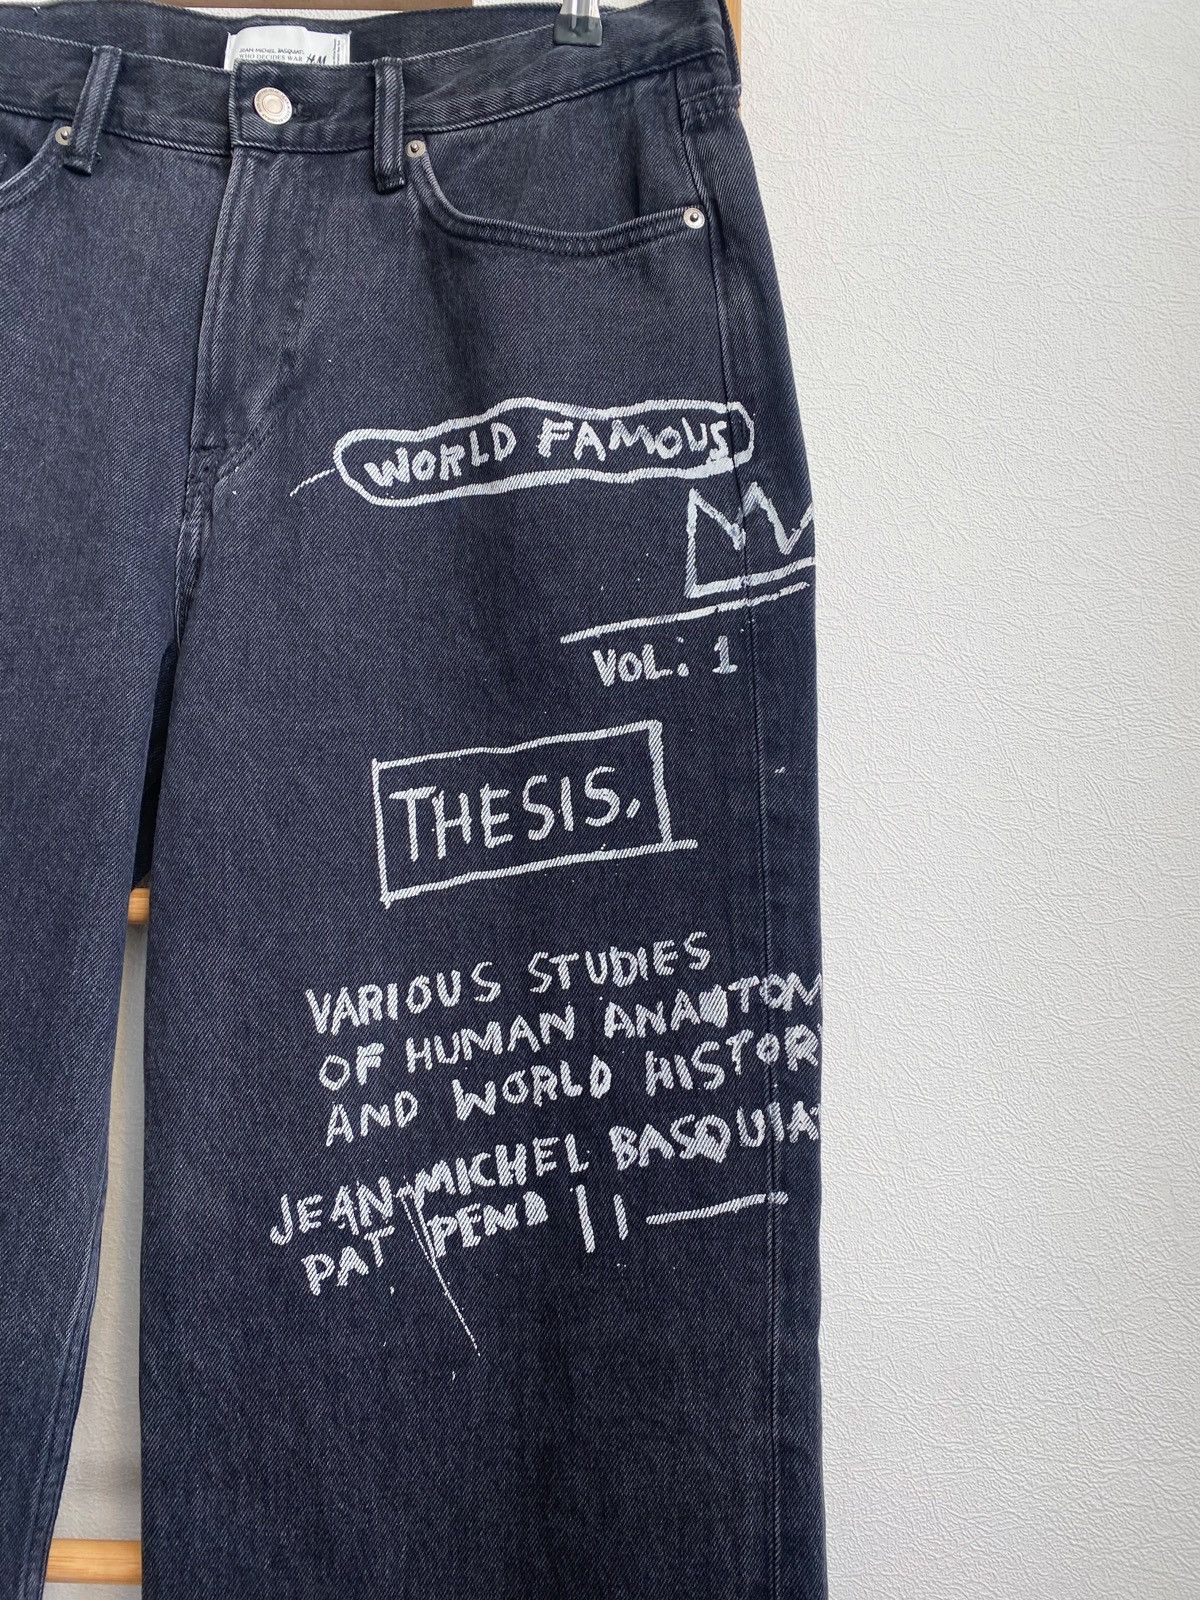 JEAN MICHEL BASQUIAT.
WHO DECIDES WAR H&M
WORLD FAMOUS
VOL. 1
THESIS.
VARIOUS STUDIES
OF HUMAN ANAUTOM
AND WORLD HISTOR
JEAN-MICHEL BASQUIAT
PAT PEND